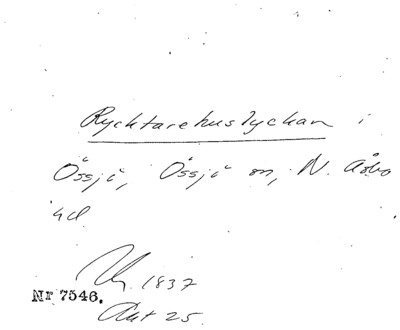 Ryktarehuslyckan i
Össjö, Össjö sn, N. Åsbo
hd
1837
Nr 7546.
Akt 25